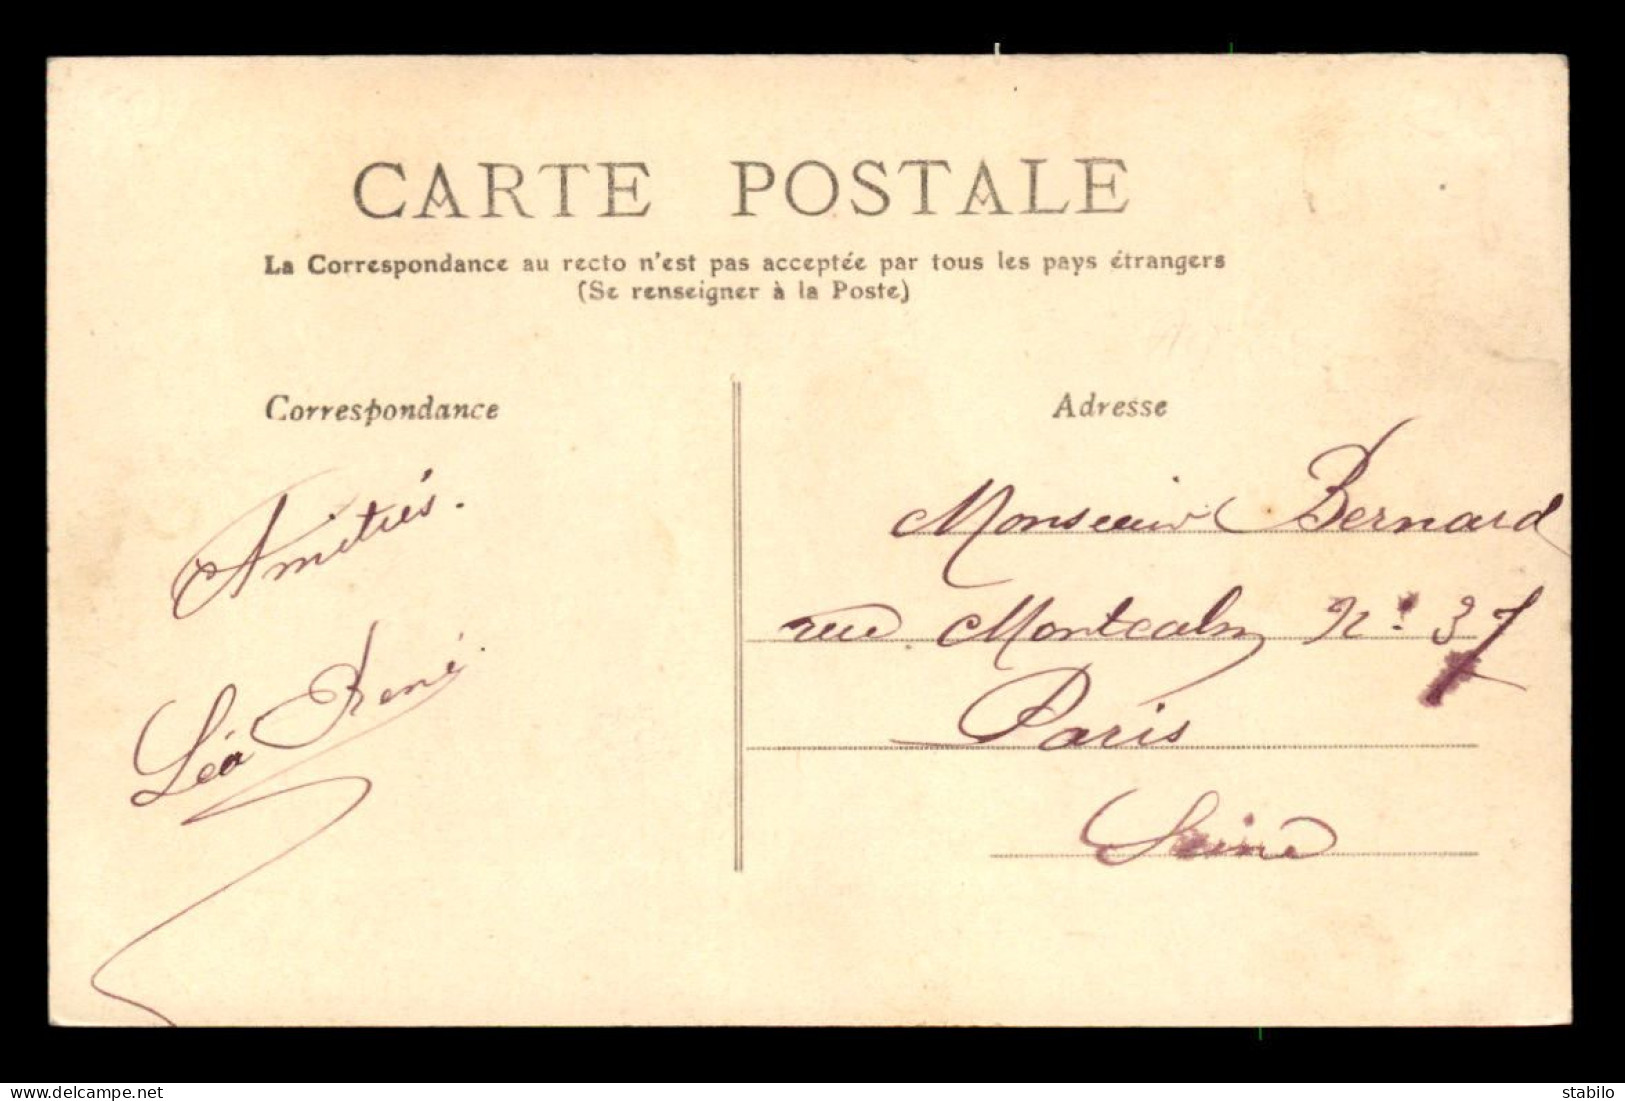 CARTE POSTALE
La Correspondance au recto n'est pas acceptée par tous les pays étrangers
(Se renseigner à la Poste)
Correspondance
Amitiés.
Léa René
Adresse
Monsieur Bernard
rue Montcalm N° 37
Paris
Seine
delcampe.net
stabilo